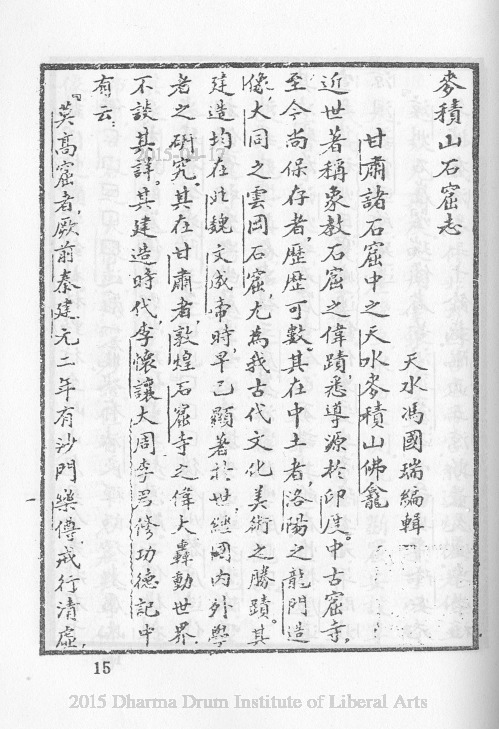 麥積山石窟志
天水馮國瑞編輯
甘肅諸石窟中之天水麥積山佛龕
近世著稱象教石窟之偉蹟，悉導源於印度。中古窟寺，
至今尚保存者，歷歷可數，其在中土者，洛陽之龍門造
像，大同之雲岡石窟，尤為我古代文化美術之勝蹟。其
建造均在北魏文成帝時，早已顯著於世，經國內外學
者之研究。其在甘肅者，敦煌石窟寺之偉大，轟動世界，
不談其詳。其建造時代，李懷讓大周李君修功德記中
有云：
『莫高窟者，厥前秦建元二年，有沙門樂僔，戒行清虛，
15
2015-04-17
2015 Dharma Drum Institute of Liberal Arts